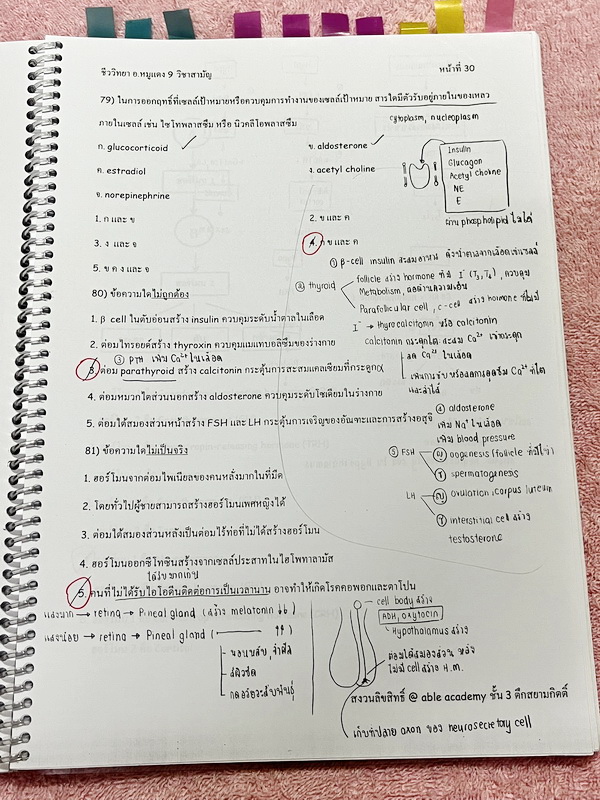 ชีววิทยา อ.หมูแดง 9 วิชาสามัญ
หน้าที่ 30
79) ในการออกฤทธิ์ที่เซลล์เป้าหมายหรือควบคุมการทำงานของเซลล์เป้าหมาย สารใดมีตัวรับอยู่ภายในของเหลว
ภายในเซลล์ เช่น ไซโทพลาสซึม หรือ นิวคลีโอพลาสซึม
cytoplasm, nucleoplasm
ก. glucocorticoid
ข. aldosterone
ค. estradiol
ง. acetyl choline
จ. norepinephrine
Insulin
Glucagon
Acetyl choline
NE
E
ผ่าน phospholipid ไม่ได้
1. ก และ ข
2. ข และ ค
3. ง และ จ
4. ก ข และ ค
5. ข ค ง และ จ
① β-cell insulin สะสมอาหาร ดึงน้ำตาลจากเลือดเข้าเซลล์
80) ข้อความใดไม่ถูกต้อง
② thyroid
follicle สร้าง hormone ที่มี I⁻ (T₃,T₄), ควบคุม
Metabolism,
Parafollicular cell, c-cell สร้าง hormone ที่ไม่มี
I⁻ → thyrocalcitonin หรือ calcitonin
1. β cell ในตับอ่อนสร้าง insulin ควบคุมระดับน้ำตาลในเลือด
2. ต่อมไทรอยด์สร้าง thyroxin ควบคุมเมแทบอลิซึมของร่างกาย
calcitonin กระตุกใต สะสม Ca²⁺ เข้ากระดูก
ลด Ca²⁺ ในเลือด
③ PTH เพิ่ม Ca²⁺ ในเลือด
3. ต่อม parathyroid สร้าง calcitonin กระตุ้นการสะสมแคลเซียมที่กระดูก
และลำไส้
4. ต่อมหมวกไตส่วนนอกสร้าง aldosterone ควบคุมระดับโซเดียมในร่างกาย
5. ต่อมใต้สมองส่วนหน้าสร้าง FSH และ LH กระตุ้นการเจริญของอัณฑะและการสร้างอสุจิ
④ aldosterone
เพิ่ม Na⁺ ในเลือด
เพิ่ม blood pressure
81) ข้อความใดไม่เป็นจริง
⑤ FSH
ญ oogenesis (follicle ที่มีไข่)
ช spermatogenesis
1. ฮอร์โมนจากต่อมไพเนียลของคนหลั่งมากในที่มืด
LH
ญ ovulation, corpus luteum
2. โดยทั่วไปผู้ชายสามารถสร้างฮอร์โมนเพศหญิงได้
ช interstitial cell สร้าง
testosterone
3. ต่อมใต้สมองส่วนหลังเป็นต่อมไร้ท่อที่ไม่ได้สร้างฮอร์โมน
4. ฮอร์โมนออกซีโทซินสร้างจากเซลล์ประสาทในไฮโพทาลามัส
ได้รับมากเกิน
5. คนที่ไม่ได้รับไอโอดีนติดต่อการเป็นเวลานาน อาจทำให้เกิดโรคคอพอกและตาโปน
แสงมาก → retina → Pineal gland (สร้าง melatonin ↓↓)
แสงน้อย → retina → Pineal gland ( ↑↑ )
นอนหลับ, จำศีล
สีผิวซีด
cell body สร้าง
ADH, oxytocin
Hypothalamus สร้าง
ต่อมใต้สมองส่วน หลัง
ไม่มี cell สร้าง H.M.
สงวนลิขสิทธิ์ @ able academy ชั้น 3 ตึกสยามกิตติ์
เก็บที่ปลาย axon ของ neurosecretory cell